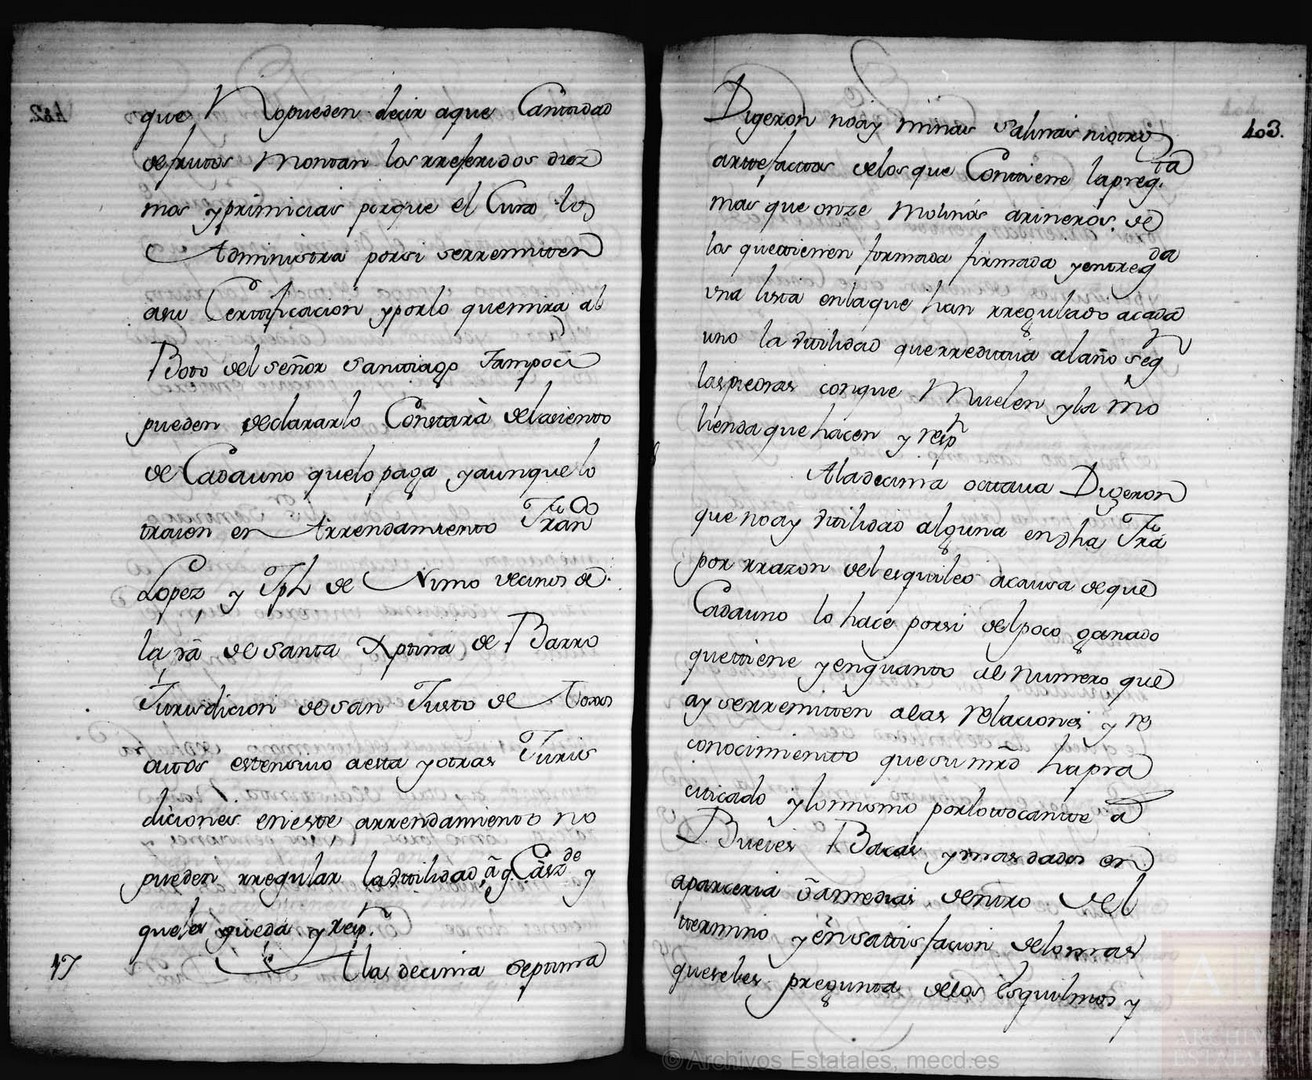 que Nopueden decir aque Cantidad
defrutos Montan losrreferidos diez
mos yprimicias porque el Cura los
Administra porsi serremitten
asu Certificacion yporlo quemira al
Boto del señor Santtiago tampoco
pueden declararlo Constará delasiento
de Cadauno quelo paga yaunquelo
traien en Arrendamiento Franco
Lopez y Jph de Nimo vecinos de
la fra de santa Xptina de Barro
Jurisdicion de san Justo de Toxos
outtos estensivo aesta yotras Juris
diciones eneste arrendamiento no
pueden rregular la Vtilidad, a q. Cada y
queles queda y resp.n
17 Alas decima septima
403.
Digeron noay minas salinas niotros
arttefactos delosque Contiene lapreg.ta
mas que onze Molinos arineros de
los quettienen formada firmada yentregda
vna lista enlaque han rregulado acada
uno la vtilidad querreditua alaño segn
laspiedras conque Muelen yla mo
lienda que hacen y respn
Aladecima octtava Digeron
que noay vtilidad alguna endha Fra
por rrazon del esquileo acausa deque
Cadauno lo hace porsi delpoco ganado
quettiene yenquanto al Numero que
ay serremitten alas Relaciones y re
conocimientto que su mrd hapra
cticado ylomismo porlottocantte a
Bueies Bacas ymas dados en
aparceria o amedias dentro del
ttermino yensattisfacion delomas
queseles pregunta delos esquilmos y
© Archivos Estatales, mecd.es